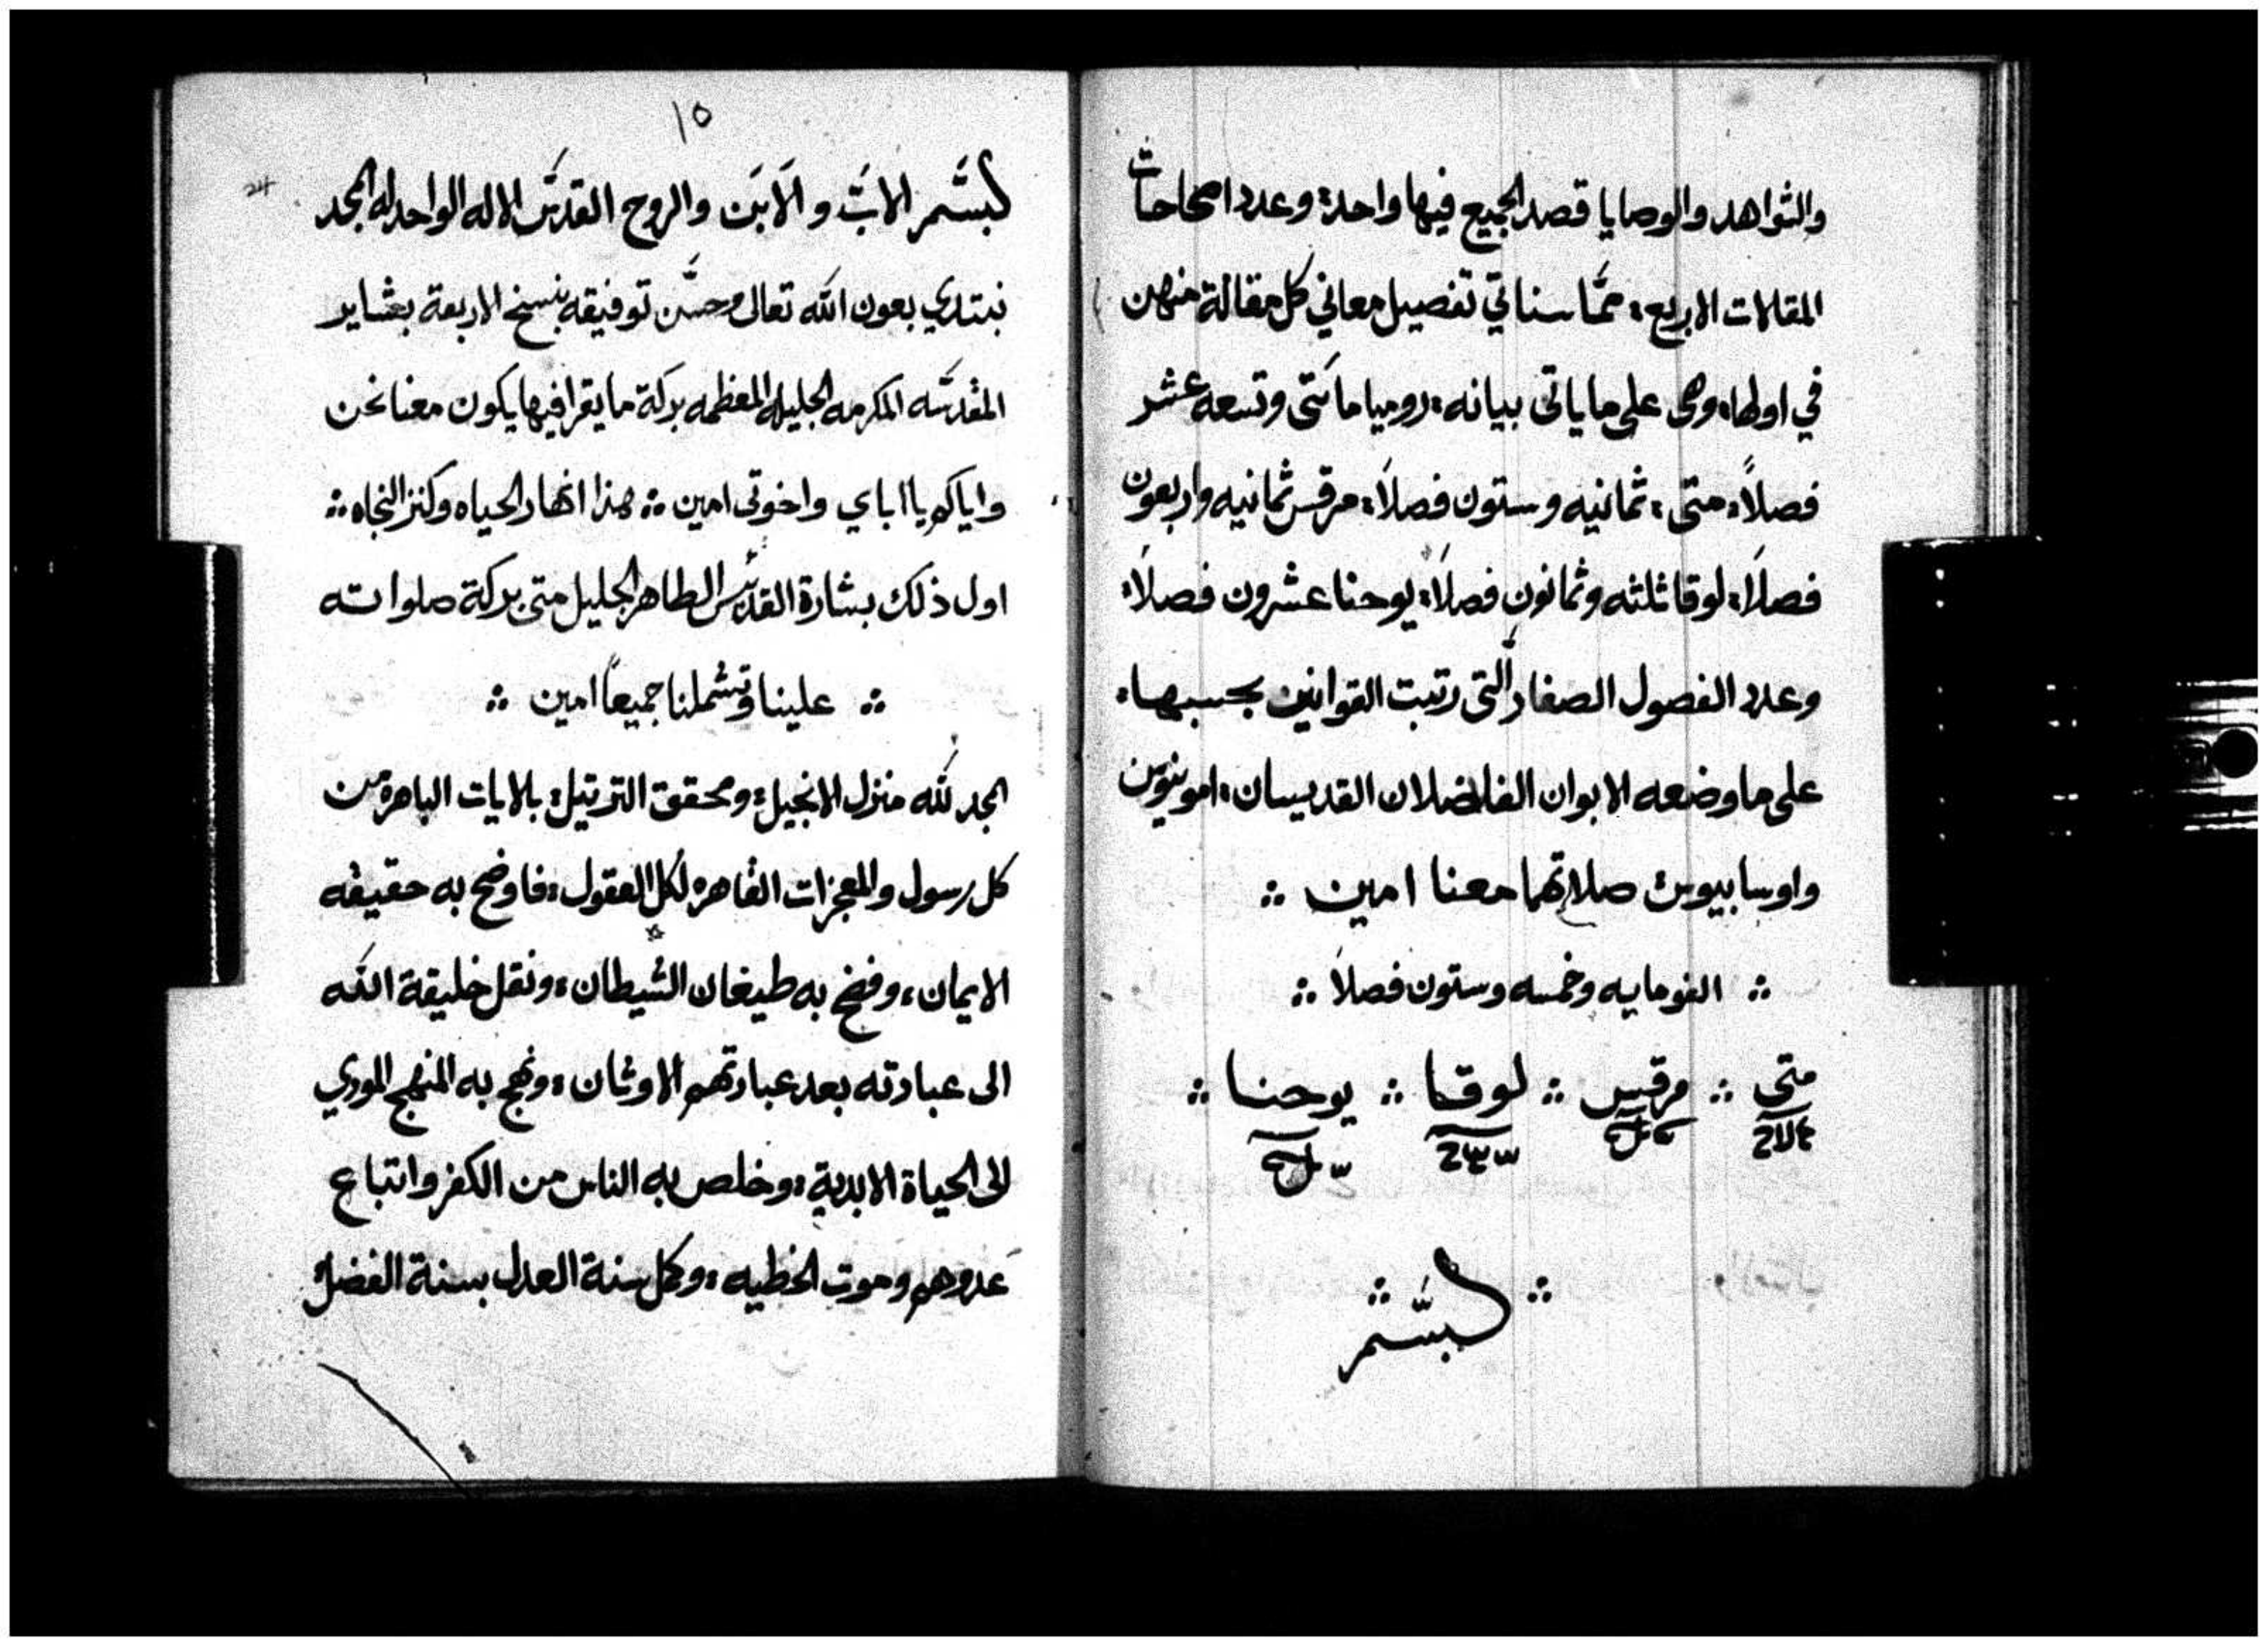 والشواهد والوصايا قصد الجميع فيها واحد؛ وعدد اصحاحات
المقالات الاربع؛ مما سناتي تفصيل معاني كل مقالة منهن
في اولها؛ وهى على ما ياتى بيانه؛ روميا مائتى وتسعه عشر
فصلاً؛ متى؛ ثمانيه وستون فصلاً؛ مرقس ثمانيه واربعون
فصلاً؛ لوقا ثلثه وثمانون فصلاً؛ يوحنا عشرون فصلاً؛
وعدد الفصول الصغار التى رتبت القوانين بحسبها؛
على ما وضعه الابوان الفاضلان القديسان؛ امونيوس
واوسابيوس صلاتهما معنا امين ܀
܀ الف ومايه وخمسه وستون فصلاً ܀
متى ܀ مرقس ܀ لوقا ܀ يوحنا ܀
܀ بسم ܀
١٥
24
بسم الاب والابن والروح القدس الاله الواحد له المجد
نبتدي بعون الله تعالى وحسن توفيقه بنسخ الاربعة بشاير
المقدسه المكرمه الجليله المعظمه بركة ما يقرا فيها يكون معنا نحن
واياكم يا اباي واخوتى امين ܀ هذا انهار الحياه وكنز النجاه ܀
اول ذلك بشارة القديس الطاهر الجليل متى بركة صلواته
܀ علينا وتشملنا جميعاً امين ܀
المجد لله منزل الانجيل؛ ومحقق الترتيل؛ بالايات الباهره من
كل رسول والمعجزات القاهره لكل العقول؛ فاوضح به حقيقه
الايمان؛ وفضح به طيغان الشيطان؛ ونقل خليقة الله
الى عبادته بعد عبادتهم الاوثان؛ ونهج به المنهج الموري
الى الحياة الابدية؛ وخلص به الناس من الكفر واتباع
عدوهم وموت الخطيه؛ وكمل سنة العدل بسنة الفضل